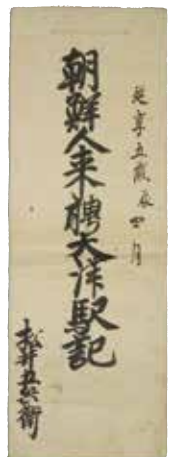 延享五歳辰四月
朝鮮人来聘大洋駅記
松井五兵衛